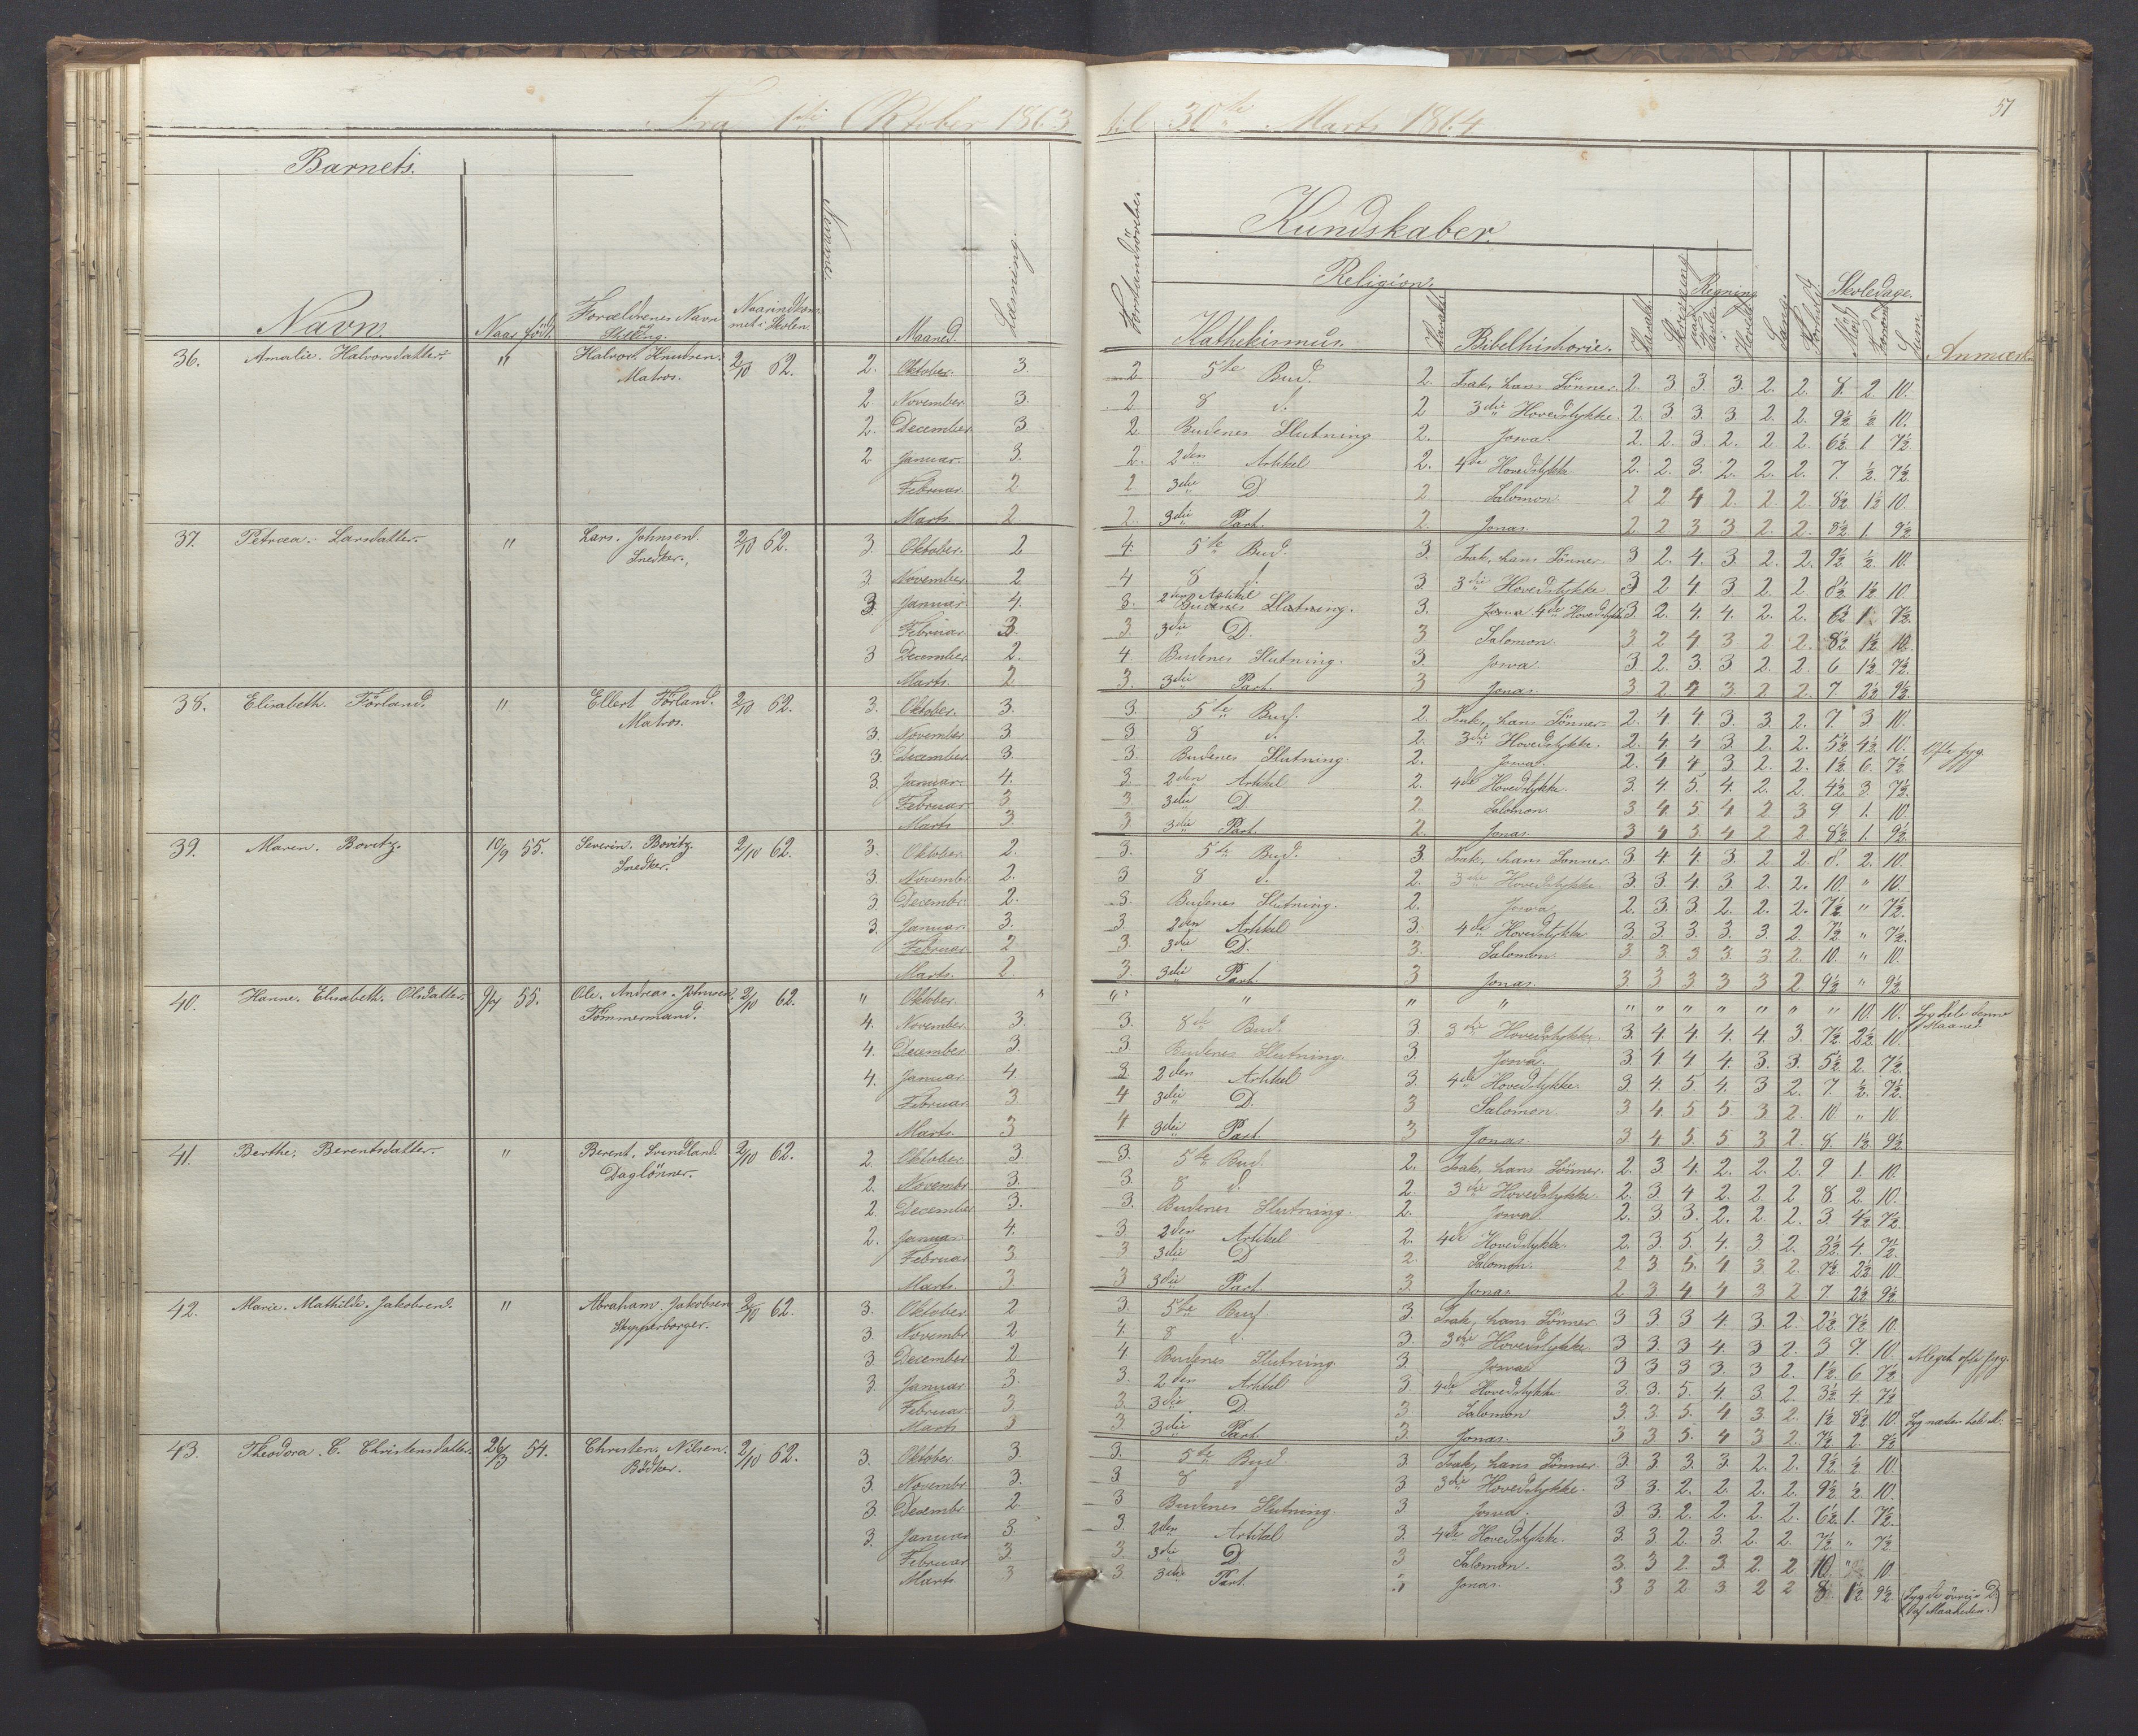 Fra 1ste Oktober 1863 til 30te Marts 1864
51
Barnets.
Kundskaber.
Religion.
Navn. Naar født. Forældrenes Navn og Stilling. Naar indkommet i Skolen. Maaned. Læsning. Kathekismus. Karakt. Bibelhistorie. Karakt. Skrivning Regning Tavle Hoved Sang. Forhold. Skoledage. Mødt Forsømt Sum. Anmærk.
36. Amalie. Halvorsdatter. " Halvor. Knudsen. 2/10 62. 2. Oktober. 3. 2 5te Bud. 2. Isak, hans Sönner. 2. 3. 3. 3. 2. 2. 8. 2. 10.
Matros.
2. November. 3. 2 8 d. 2 3die Hovedstykke. 2. 3. 3. 3 2. 2. 9½ ½ 10.
2. December. 3. 2 Budenes Slutning 2. Josva. 2. 2. 3. 2. 2. 2. 6½ 1 7½
2 Januar. 3. 2. 2den Artikel 2. 4de Hovedstykke 2. 2. 3. 2. 2. 2. 7. ½ 7½
Februar. 2 2 3die D 2 Salomon. 2 2 4 2. 2. 2. 8½ 1½ 10.
Marts. 2. 2. 3die Part. 2. Jonas. 2 2 3 3 2. 2. 8½ 1. 9½
37. Petræa. Larsdatter. " Lars. Johnsen. 2/10 62. 3. Oktober. 2 4. 5te Bud. 3. Isak, hans Sönner 3 2. 4. 3. 2. 2. 9½ ½ 10.
Snedker.
3. November. 2 4 8 d. 3 3die Hovedstykke 3 2 4 3 2. 2. 8½ 1½ 10.
3 Januar. 4. 3. 2den Artikel 3. 4de Hovedstykke 3. 2. 4. 4. 2. 2. 6½ 1 7½
Februar. 3. 3. 3die D. 3 Salomon. 3 2 4 3 2 2. 8½ 1½ 10.
3 December. 2. 4 Budenes Slutning. 3. Josva. 3. 2. 3. 3 2. 2. 6 1½ 7½
Marts. 2 3. 3die Part. 3 Jonas. 3 2. 4 3. 2. 2. 7. 2½ 9½
38. Elisabeth. Förland. " Ellert Förland. 2/10 62. 3. Oktober. 3. 3. 5te Bud. 2. Isak, hans Sönner 2. 4. 4. 3. 3. 2. 7. 3. 10.
Matros.
3. November 3 3. 8 d. 2. 3die Hovedstykke. 2. 4. 4 3. 2. 2. 5½ 4½ 10. Ofte syg.
3. December. 3. 3. Budenes Slutning. 2. Josva. 2. 4 4 3. 2. 2. 1½ 6. 7½
3. Januar. 4. 3. 2den Artikel 2. 4de Hovedstykke. 3. 4. 5. 4. 2. 2. 4½ 3 7½
Februar. 3 3. 3die D. 2. Salomon. 3 4. 5 4. 2 3 9 1. 10.
Marts 3. 3 3die Part. 2. Jonas. 3 4 5. 4 2 2 8½ 1. 9½
39. Maren. Bovitz. 10/9 55. Severin. Bovitz. 2/10 62. 3. Oktober. 2. 3. 5te Bud. 3. Isak, hans Sonner. 3. 4. 4. 3. 2 2. 8. 2. 10.
Snedker.
3. Novembr. 2. 3 8 d. 2. 3die Hovedstykke 3. 3. 4. 3. 2. 2. 10. " 10.
3. Decembr. 2. 3. Budenes Slutning. 2. Josva 2. 3. 3. 2. 2. 2. 7½ " 7½
3. Januar. 3. 3. 2den Artikel 3. 4de Hovedstykke 3. 3. 3. 3. 3. 2. 7½ " 7½
Februar 2 3. 3die D. 3. Salomon. 3. 3. 3 3. 3. 2. 10. " 10.
Marts. 2. 3. 3die Part. 3 Jonas. 3 3 3 3 3 2 9½ " 9½
40. Hanne. Elisabeth. Olsdatter. 9/4 55. Ole. Andreas. Johnsen. 2/10 62. " Oktober. " " " " " " " " " " " " 10. 10. Syg hele denne
Tömmermand. Maaned.
4. November. 3. 3. 8de Bud. 3 3die Hovedstykke. 3. 4. 4. 4. 4. 3. 7½ 2½ 10.
4. December. 3. 3. Budenes Slutning. 3. Josva. 3. 4 4. 4 3. 3. 5½ 2. 7½
4. Januar. 4. 3. 2den Artikel 3. 4de Hovedstykke. 3. 4. 5. 4. 3 2. 7. ½ 7½
Februar. 3. 4 3die D. 3 Salomon. 3 4. 5 5. 3 2. 10 " 10.
Marts. 3 4 3die Part. 3 Jonas. 3. 4 5. 5 3 2. 8. 1½ 9½
41. Berthe. Berentsdatter. " Berent. Svindland. 2/10 62. 2. Oktober. 3. 3. 5te Bud. 2. Isak, hans Sönner. 2. 3. 4. 2. 2. 2. 9. 1. 10.
Daglönner.
2. Novembr. 3. 3. 8 d. 2. 3die Hovedstykke. 2. 3. 4 2. 2. 2 8. 2. 10.
2 December 3. 3. Budenes Slutning. 2. Josva. 2. 3. 3. 2. 2. 2. 3. 4½ 7½
2. Januar. 4. 3. 2den Artikel 2. 4de Hovedstykke. 2. 3. 5. 4. 3. 2. 3½ 4. 7½
Februar 3 3 3die D 2. Salomon. 2 3 5. 4 3. 2. 7½ 2½ 10.
Marts. 3 3 3die Part. 3. Jonas 2 3 4 4 3 2 7 2½ 9½
42. Marie. Mathilde. Jakobsen. " Abraham. Jakobsen 2/10 62. 3. Oktober. 2 3. 5te Bud 3. Isak, hans Sönner 3 3 3 4. 3. 2. 2½ 7½ 10.
Skipperborger.
3. Novembr. 2 4. 8 d. 3 3die Hovedstykke 3 3. 3 4. 3 2. 3 7. 10.
3 December. 2 4 Budenes Slutning. 3. Josva. 3 3 3 3. 3 2. 1½ 6. 7½ Meget ofte syg.
3. Januar. 3. 3. 2den Artikel 3. 4de Hovedstykke 3. 3. 5. 4 3. 2. 3½ 4. 7½
Februar. 3 3. 3die D. 3 Salomon 3 3. 5. 4 3. 2. 1½ 8½ 10.
Marts 3 3 3die Part. 3. Jonas. 3 3 5. 4 3 2. 7½ 2. 9½
43. Theodora. C. Christensdatter. 26/3 54. Christen. Nilsen. 2/10 62. 3. Oktober. 3 3. 5te Bud. 3 Isak, hans Sönner 3. 3. 3. 3. 2. 2. 9½ ½ 10.
Bödker.
3. Novembr. 3. 3. 8 d 3 3die Hovedstykke. 3 3. 2. 2. 2. 2. 9½ ½ 10.
3. Decembr. 2. 3 Budenes Slutning 3 Josva. 3. 3. 2. 2. 2. 2. 6½ 1. 7½
3. Januar 3. 3. 2den Artikel 3. 4de Hovedstykke. 3. 3 2. 3. 2. 2. 7½ " 7½
Februar 3. 3 3die D. 3 Salomon. 3. 3 2. 3. 2. 2 10. " 10
Marts. 3 3. 3die Part. 3 Jonas. 3 3 2 3 2 2 8 1½ 9½